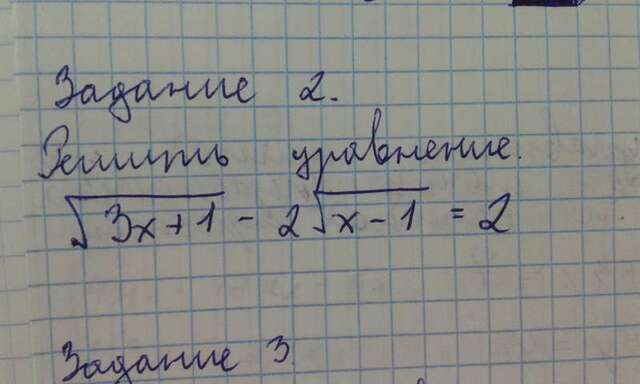 Задание 2.
Решить уравнение.
√3x+1 - 2√x-1 = 2
Задание 3